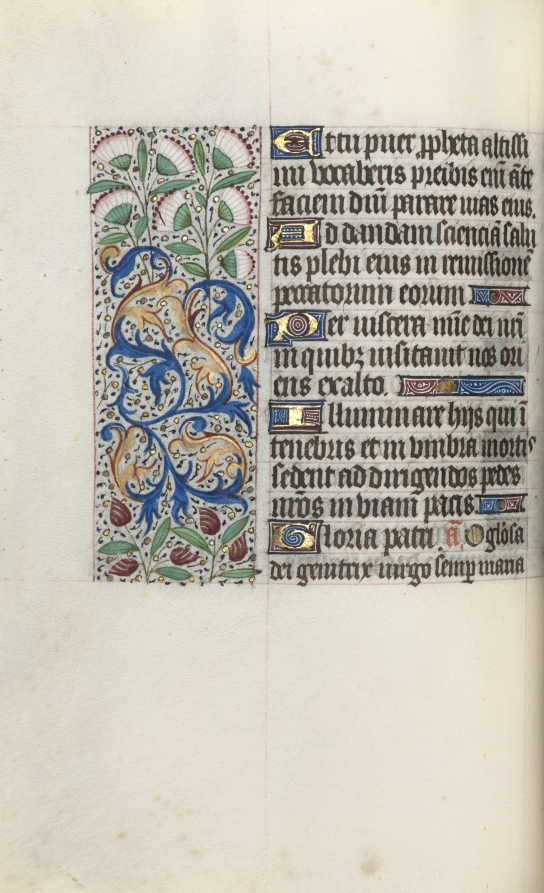 Et tu puer ꝓpheta altissi
mi vocaberis preibis eni āte
faciem dñi parare uias eius.
Ad dandam scienciā salu
tis plebi eius in remissione
peccatorum eorum
Per uiscera mīe dei nr̄i
in quibꝫ uisitauit nos ori
ens ex alto.
Illuminare hijs qui ī
tenebris et in vmbra mortis
sedent ad dirigendos pedes
nr̄os in viam pacis
Gloria patri ā. O glōsa
dei genitrix uirgo semp maria